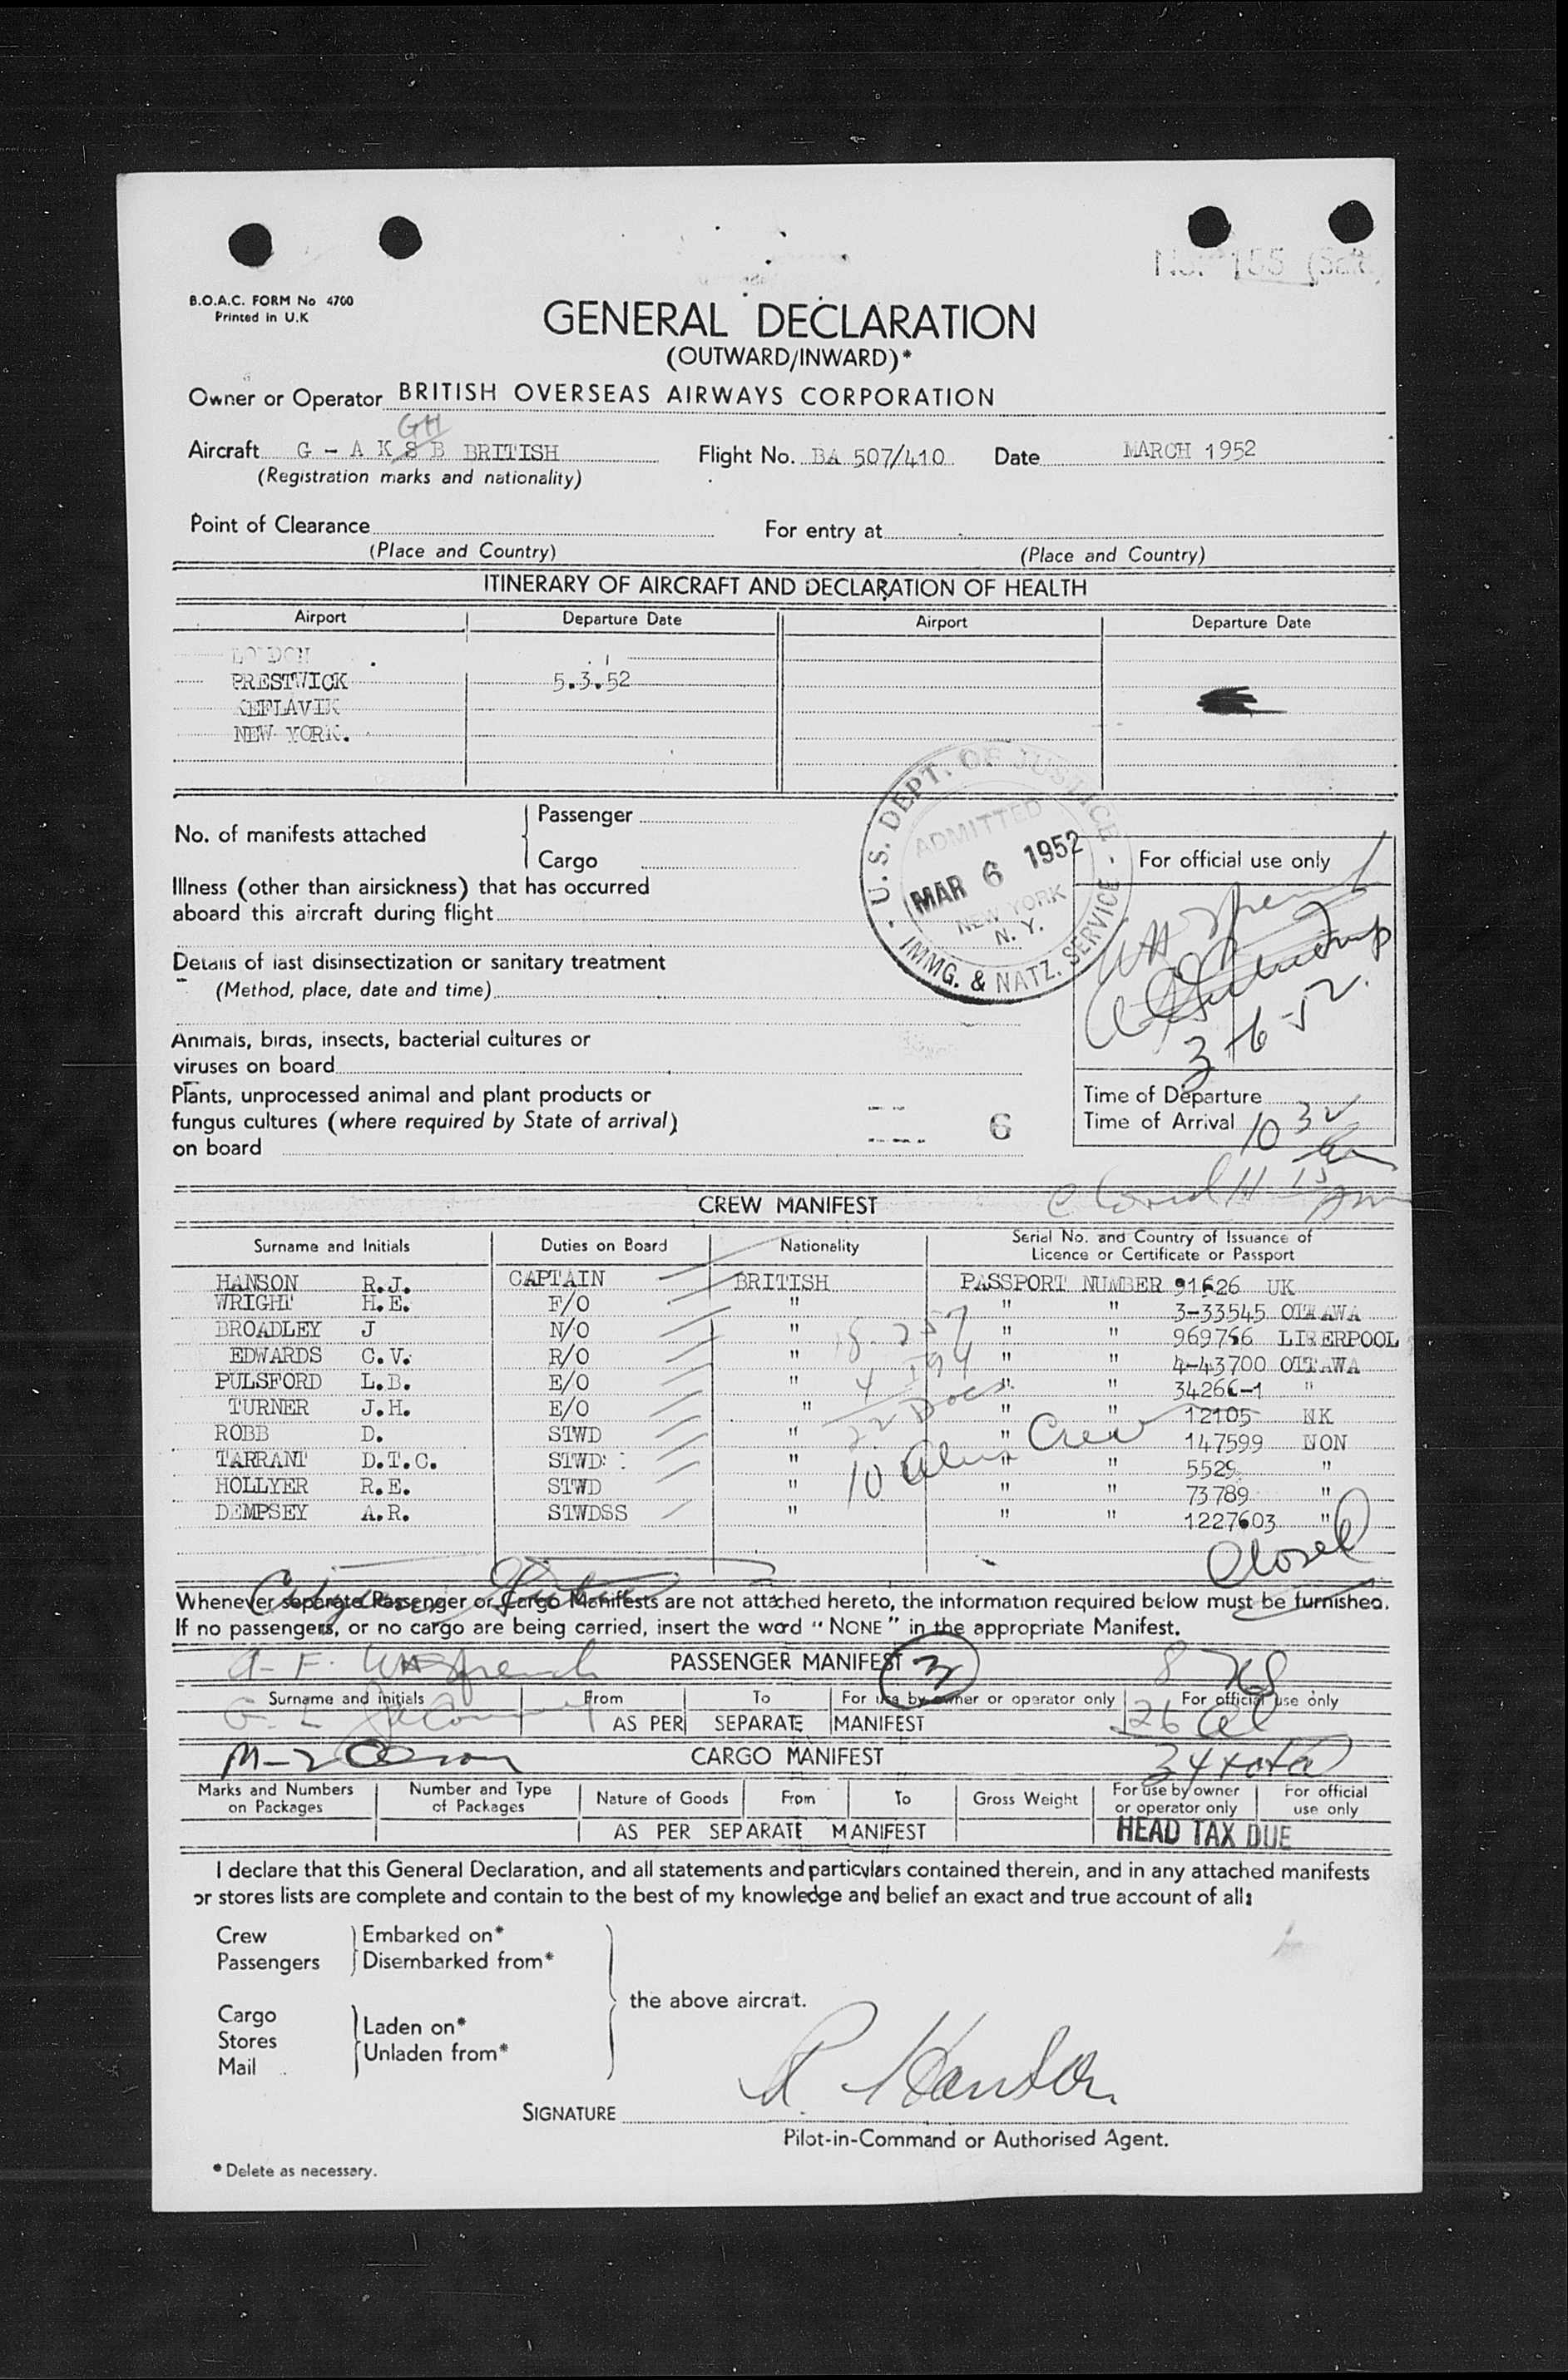 No. 155
B.O.A.C. FORM No 4700
Printed in U.K
GENERAL DECLARATION
(OUTWARD/INWARD)*
Owner or Operator BRITISH OVERSEAS AIRWAYS CORPORATION
GH
Aircraft G - A K S B BRITISH Flight No. BA 507/410 Date MARCH 1952
(Registration marks and nationality)
Point of Clearance For entry at
(Place and Country) (Place and Country)
ITINERARY OF AIRCRAFT AND DECLARATION OF HEALTH
Airport Departure Date Airport Departure Date
LONDON
PRESTWICK 5.3.52
KEFLAVIK
NEW YORK.
No. of manifests attached Passenger
Cargo
U.S. DEPT. OF JUSTICE
ADMITTED
MAR 6 1952
NEW YORK
N. Y.
IMMG. & NATZ. SERVICE
For official use only
3-6-52
Illness (other than airsickness) that has occurred
aboard this aircraft during flight
Details of last disinsectization or sanitary treatment
(Method, place, date and time)
Animals, birds, insects, bacterial cultures or
viruses on board
Plants, unprocessed animal and plant products or
fungus cultures (where required by State of arrival)
on board
6
Time of Departure
Time of Arrival 10 32 am
Closed 11 15 am
CREW MANIFEST
Surname and Initials Duties on Board Nationality Serial No. and Country of Issuance of
Licence or Certificate or Passport
HANSON R.J. CAPTAIN BRITISH PASSPORT NUMBER 91626 UK
WRIGHT H.E. F/O " " " 3-33545 OTTAWA
BROADLEY J N/O " " " 969766 LIVERPOOL
EDWARDS C.V. R/O " " " 4-43700 OTTAWA
PULSFORD L.B. E/O " " " 34266-1 "
TURNER J.H. E/O " " " 12105 NK
ROBB D. STWD " " " 147599 NON
TARRANT D.T.C. STWD " " " 5529 "
HOLLYER R.E. STWD " " " 73789 "
DEMPSEY A.R. STWDSS " " " 1227603 "
18 - 257
4 194
22 Docs
10 Alien Crew
Closed
Whenever separate Passenger or Cargo Manifests are not attached hereto, the information required below must be furnished.
If no passengers, or no cargo are being carried, insert the word "NONE" in the appropriate Manifest.
PASSENGER MANIFEST
3
8
Surname and initials From To For use by owner or operator only For official use only
AS PER SEPARATE MANIFEST
26 al
CARGO MANIFEST
34 total
Marks and Numbers on Packages Number and Type of Packages Nature of Goods From To Gross Weight For use by owner or operator only For official use only
AS PER SEPARATE MANIFEST
HEAD TAX DUE
I declare that this General Declaration, and all statements and particulars contained therein, and in any attached manifests
or stores lists are complete and contain to the best of my knowledge and belief an exact and true account of all:
Crew Embarked on*
Passengers Disembarked from*
the above aircraft.
Cargo Laden on*
Stores
Mail Unladen from*
R. Hanson
SIGNATURE
Pilot-in-Command or Authorised Agent.
* Delete as necessary.